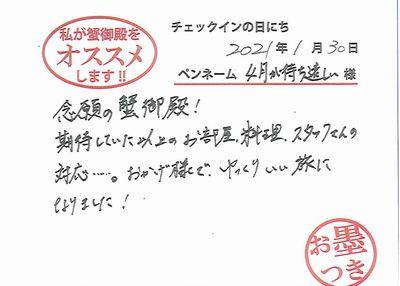 私が蟹御殿を
オススメ
します!!
チェックインの日にち
2021年1月30日
ペンネーム 4月が待ち遠しい 様
念願の蟹御殿!
期待していた以上のお部屋、料理、スタッフさんの
対応……。おかげ様で、ゆっくりいい旅に
なりました!
お墨
つき